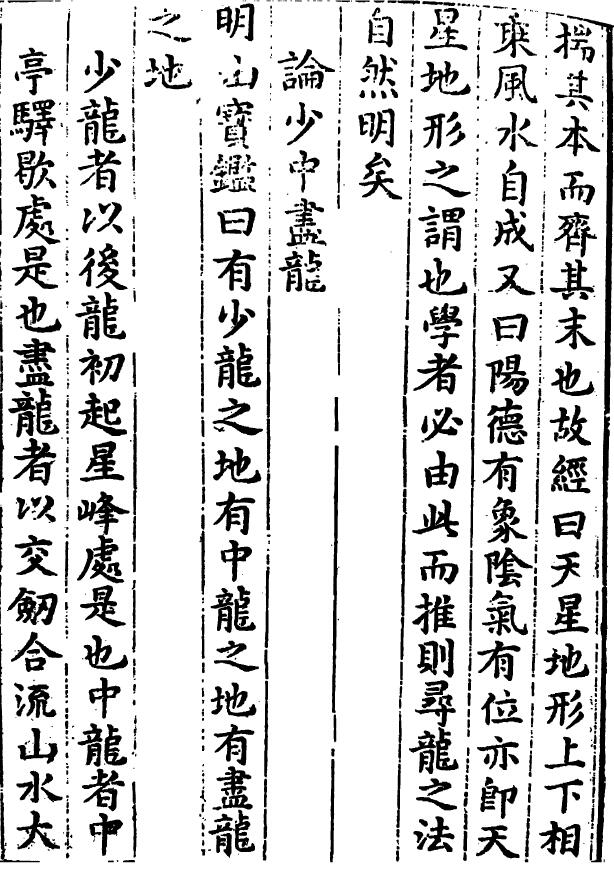 揣其本而齊其末也故經曰天星地形上下相
乘風水自成又曰陽德有象陰氣有位亦卽天
星地形之謂也學者必由此而推則尋龍之法
自然明矣
論少中盡龍
明山寶鑑曰有少龍之地有中龍之地有盡龍
之地
少龍者以後龍初起星峰處是也中龍者中
亭驛歇處是也盡龍者以交劒合流山水大